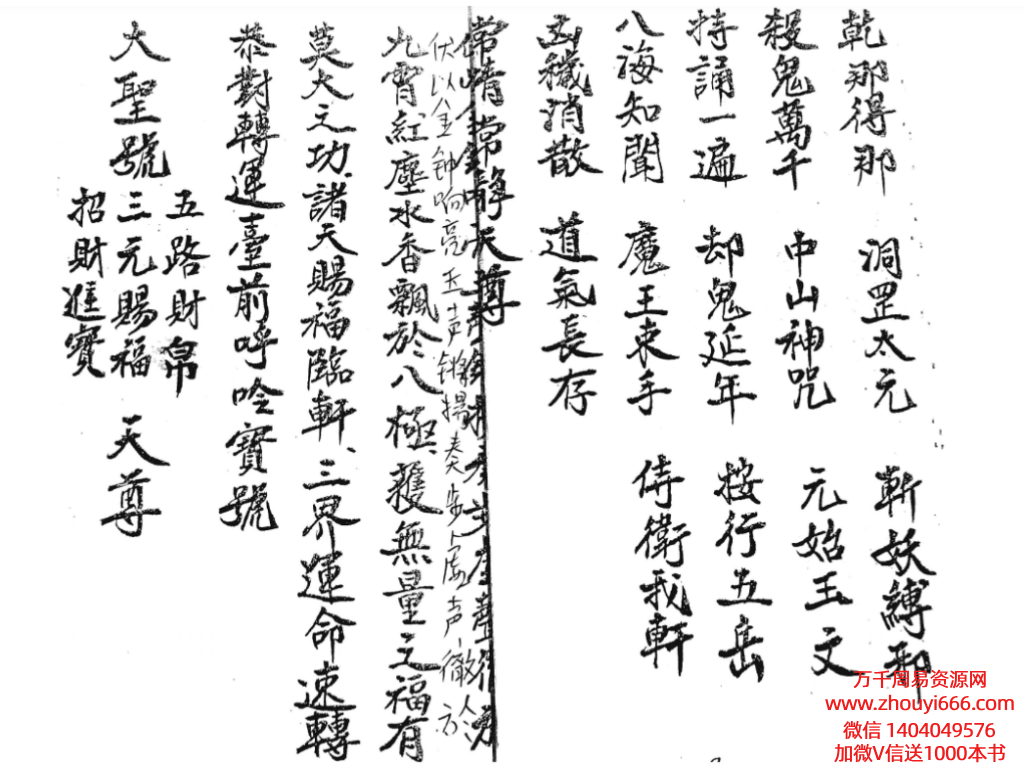 乾那得那 洞罡太元 斬妖縛邪
殺鬼萬千 中山神咒 元始玉文
持誦一遍 却鬼延年 按行五岳
八海知聞 魔王束手 侍衛我軒
凶穢消散 道氣長存
常清常靜天尊
伏以金钟响亮玉声锵揚奏步虚声徹
九霄紅塵水香飄於八極獲無量之福有
莫大之功、諸天賜福臨軒、三界運命速轉
恭對轉運臺前呼唫寶號
大聖號
五路財帛
三元賜福
招財進寶
天尊
万千周易资源网
www.zhouyi666.com
微信 1404049576
加微V信送1000本书